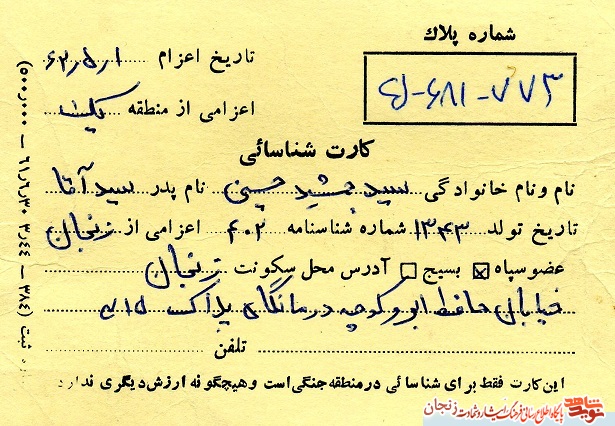 شماره پلاک
تاریخ اعزام ۶۲٫۵٫۱
۷۷۳-۶۸۱-
اعزامی از منطقه یک
کارت شناسائی
نام و نام خانوادگی سید جمشید حسینی نام پدر سید آقا
تاریخ تولد ۱۳۴۳ شماره شناسنامه ۴۰۲ اعزامی از زنجان
عضو سپاه ☒ بسیج ☐ آدرس محل سکونت زنجان
خیابان حافظ ابرو کوچه درمانگاه پلاک ۲۱۵
تلفن
این کارت فقط برای شناسائی در منطقه جنگی است و هیچگونه ارزش دیگری ندارد
ثبت (۳۸۴ – ۳٫۴۴ ۶۱٫۶٫۳۰ – ۵۰۰٫۰۰۰)
نوید شاهد پایگاه اطلاع رسانی فرهنگ ایثار و شهادت زنجان